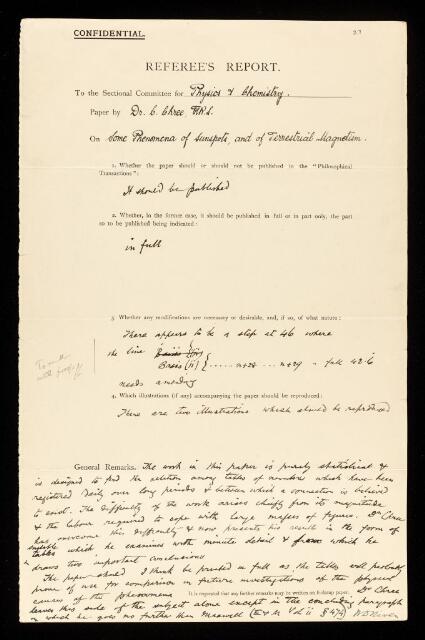 CONFIDENTIAL.
23
REFEREE'S REPORT.
To the Sectional Committee for Physics & Chemistry.
Paper by Dr. C. Chree F.R.S.
On Some Phenomena of Sunspots, and of Terrestrial Magnetism.
1. Whether the paper should or should not be published in the "Philosophical
Transactions":
It should be published
2. Whether, in the former case, it should be published in full or in part only, the part
so to be published being indicated:
in full
3. Whether any modifications are necessary or desirable, and, if so, of what nature:
There appears to be a slip at 46 where
the line
(ii) ...... n+28 ... n+29 full 42.6
needs amending
4. Which illustrations (if any) accompanying the paper should be reproduced:
There are two illustrations which should be reproduced
General Remarks. The work in this paper is purely statistical &
is designed to find the relation among tables of numbers which have been
registered daily over long periods & between which a connection is believed
to exist. The difficulty of the work arises chiefly from its magnitude
& the labour required to cope with large masses of figures. Dr Chree
has overcome this difficulty & now presents his result in the form of
suitable
tables which he examines with minute detail & from which he
draws two important conclusions
The paper should I think be printed in full as the tables will probably
prove of use for comparison in future investigations of the physical
causes of the phenomena
It is requested that any further remarks may be written on foolscap paper.
Dr Chree
leaves this side of the subject alone except in the concluding paragraph
in which he goes no further than Maxwell (E & M Vol ii § 474)
W D Niven